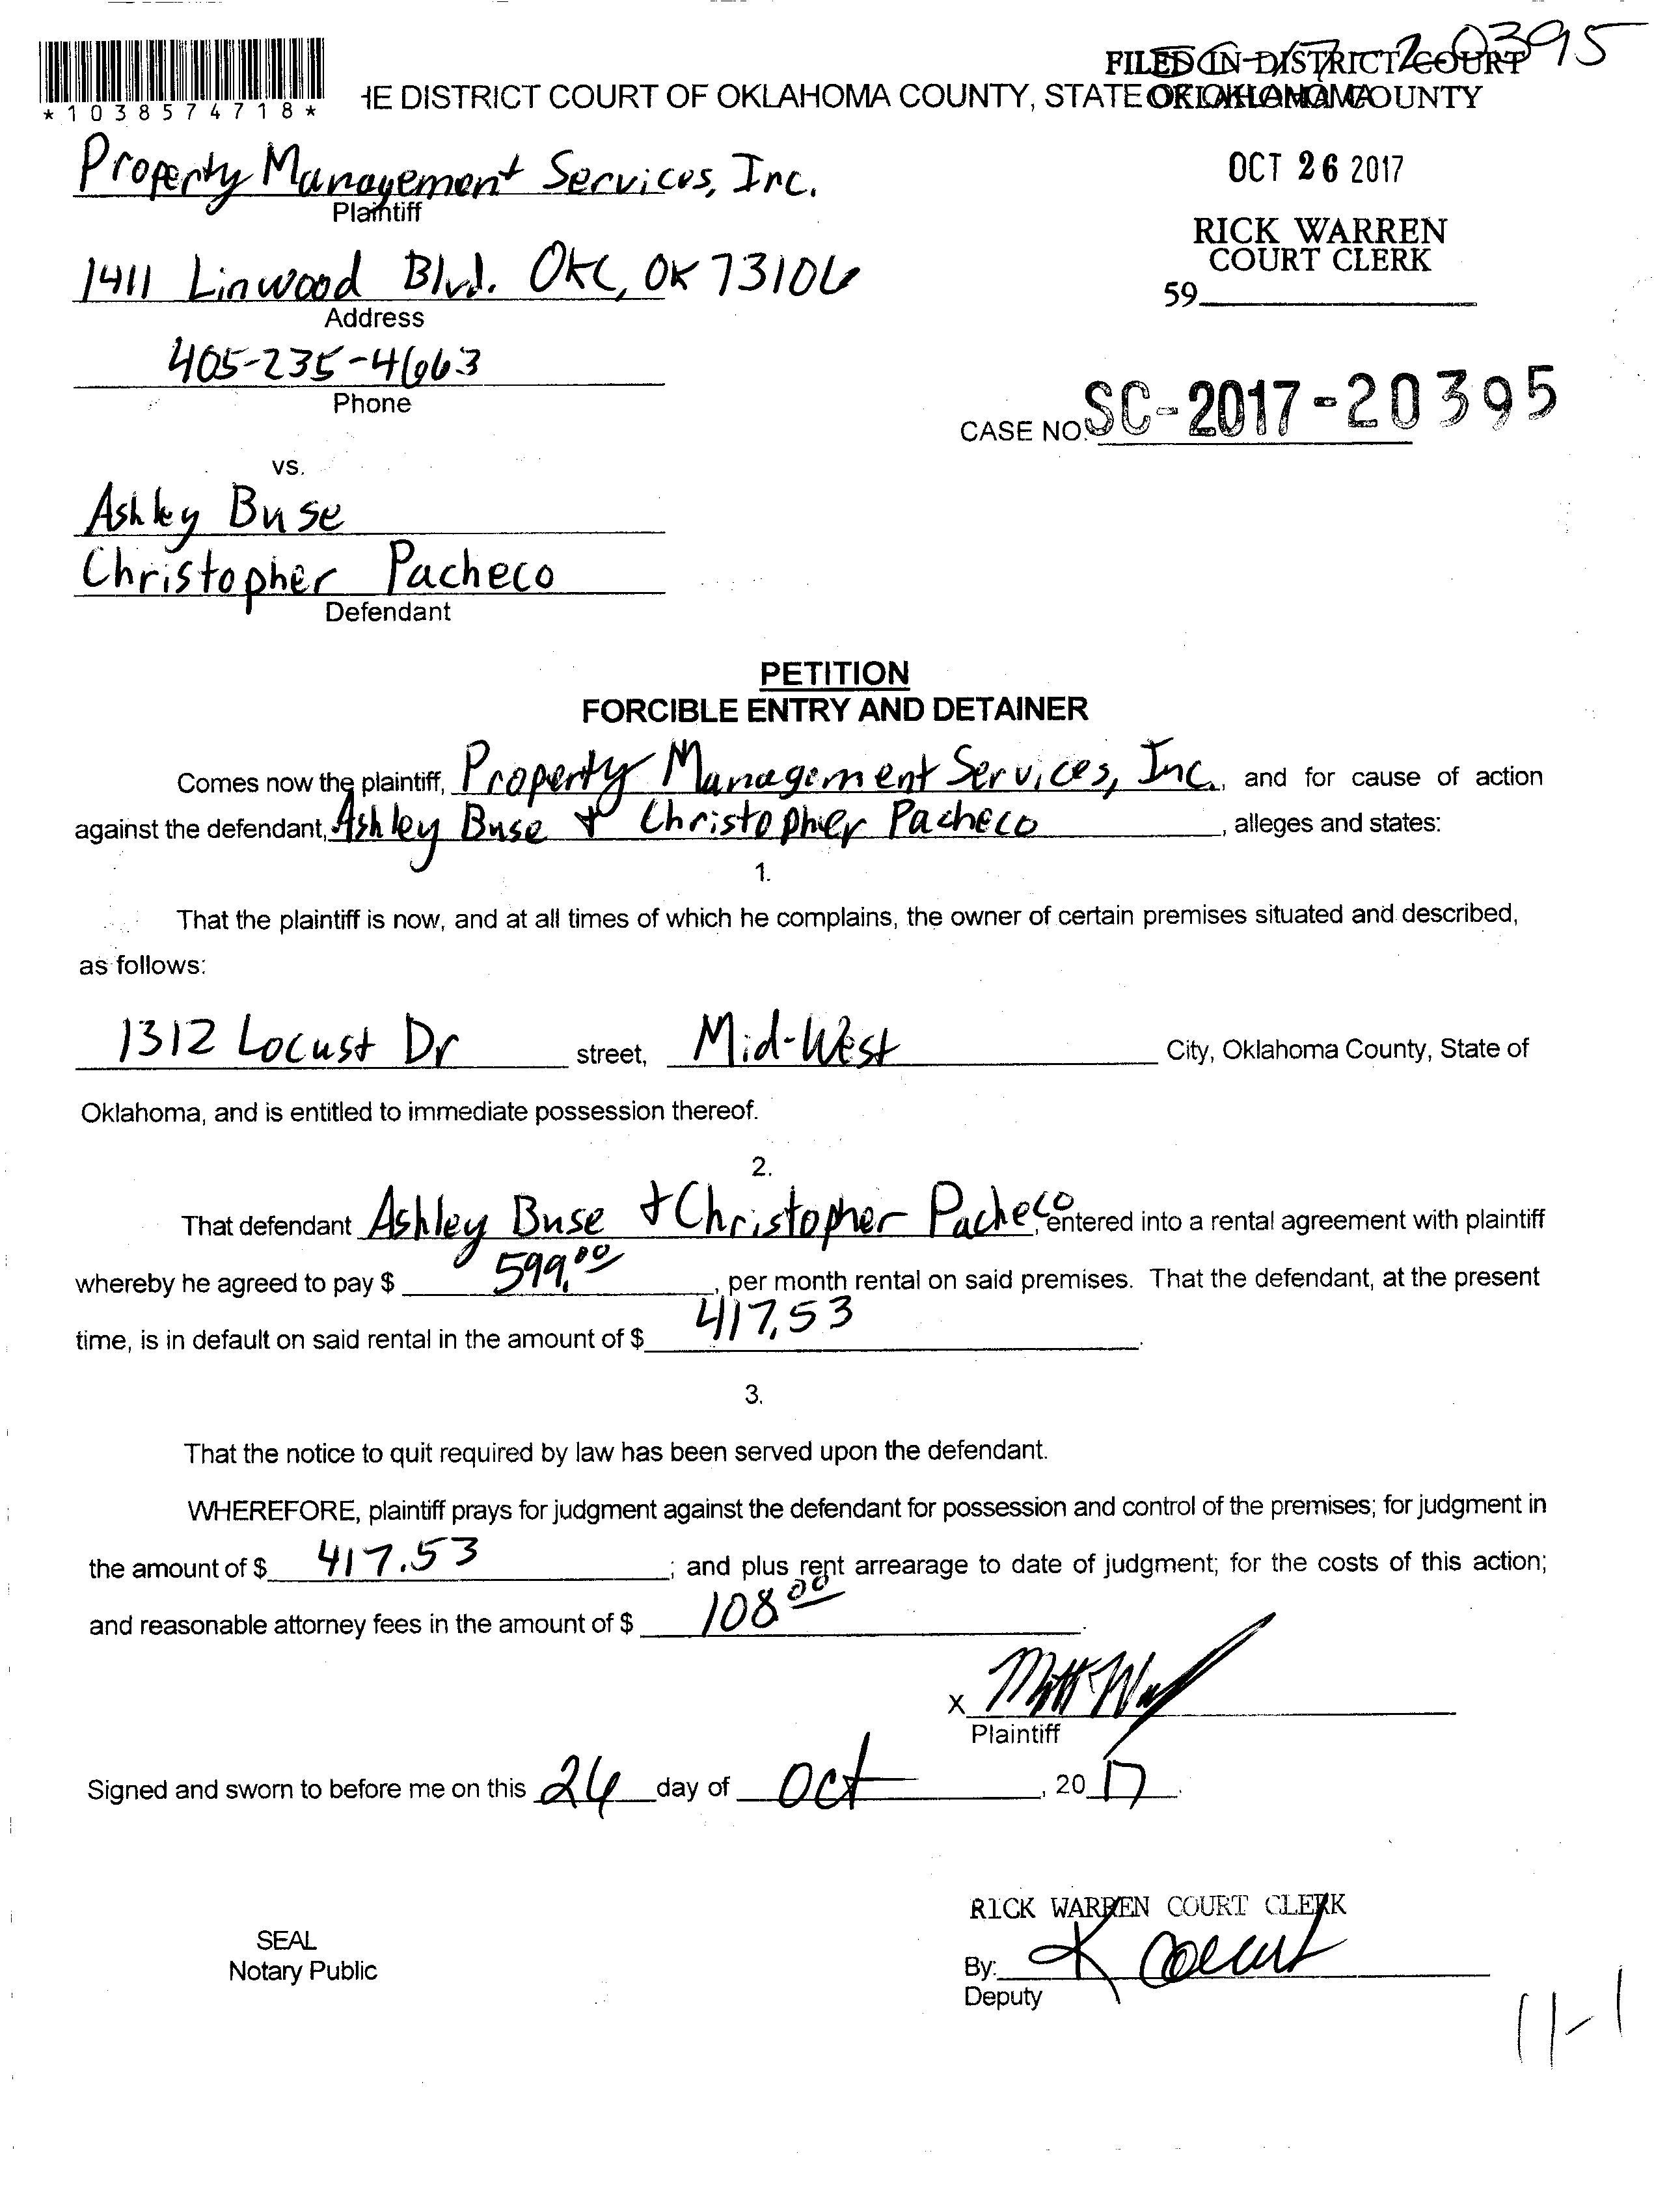 SC-17-20395
FILED IN DISTRICT COURT
*1038574718*
HE DISTRICT COURT OF OKLAHOMA COUNTY, STATE OF OKLAHOMA
OKLAHOMA COUNTY
Property Management Services, Inc.
Plaintiff
OCT 26 2017
RICK WARREN
COURT CLERK
59
1411 Linwood Blvd. OKC, OK 73106
Address
405-235-4663
Phone
CASE NO. SC-2017-20395
vs.
Ashley Buse
Christopher Pacheco
Defendant
PETITION
FORCIBLE ENTRY AND DETAINER
Comes now the plaintiff, Property Management Services, Inc., and for cause of action
against the defendant, Ashley Buse + Christopher Pacheco, alleges and states:
1.
That the plaintiff is now, and at all times of which he complains, the owner of certain premises situated and described,
as follows:
1312 Locust Dr street, Mid-West City, Oklahoma County, State of
Oklahoma, and is entitled to immediate possession thereof.
2.
That defendant Ashley Buse + Christopher Pacheco, entered into a rental agreement with plaintiff
whereby he agreed to pay $ 599.00, per month rental on said premises. That the defendant, at the present
time, is in default on said rental in the amount of $ 417.53.
3.
That the notice to quit required by law has been served upon the defendant.
WHEREFORE, plaintiff prays for judgment against the defendant for possession and control of the premises; for judgment in
the amount of $ 417.53; and plus rent arrearage to date of judgment; for the costs of this action;
and reasonable attorney fees in the amount of $ 108.00.
X
Plaintiff
Signed and sworn to before me on this 26 day of Oct, 2017.
RICK WARREN COURT CLERK
SEAL
Notary Public
By:
Deputy
11-1